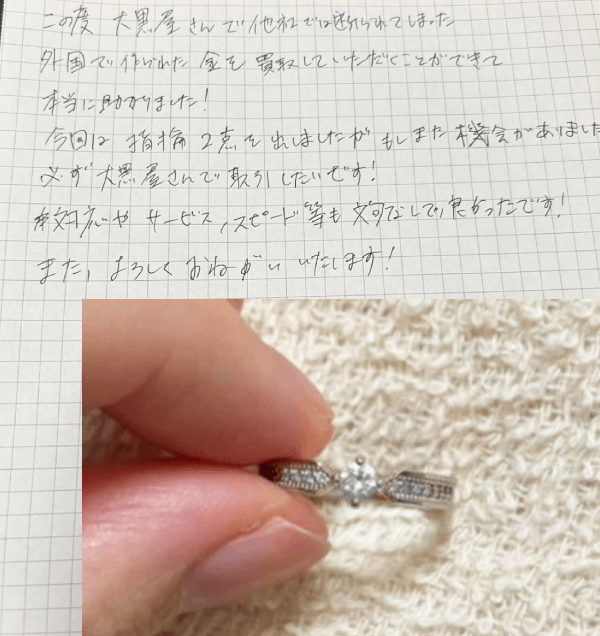 この度 大黒屋さんで他社では断られてしました
外国で作られた 金を 買取していただくことができて
本当に助かりました!
今回は 指輪 2点を出しましたが もしまた 機会がありました
必ず 大黒屋さんで 取引したいです!
対応や サービス、スピード等も 文句なしで、良かったです!
また、よろしく おねがい いたします!